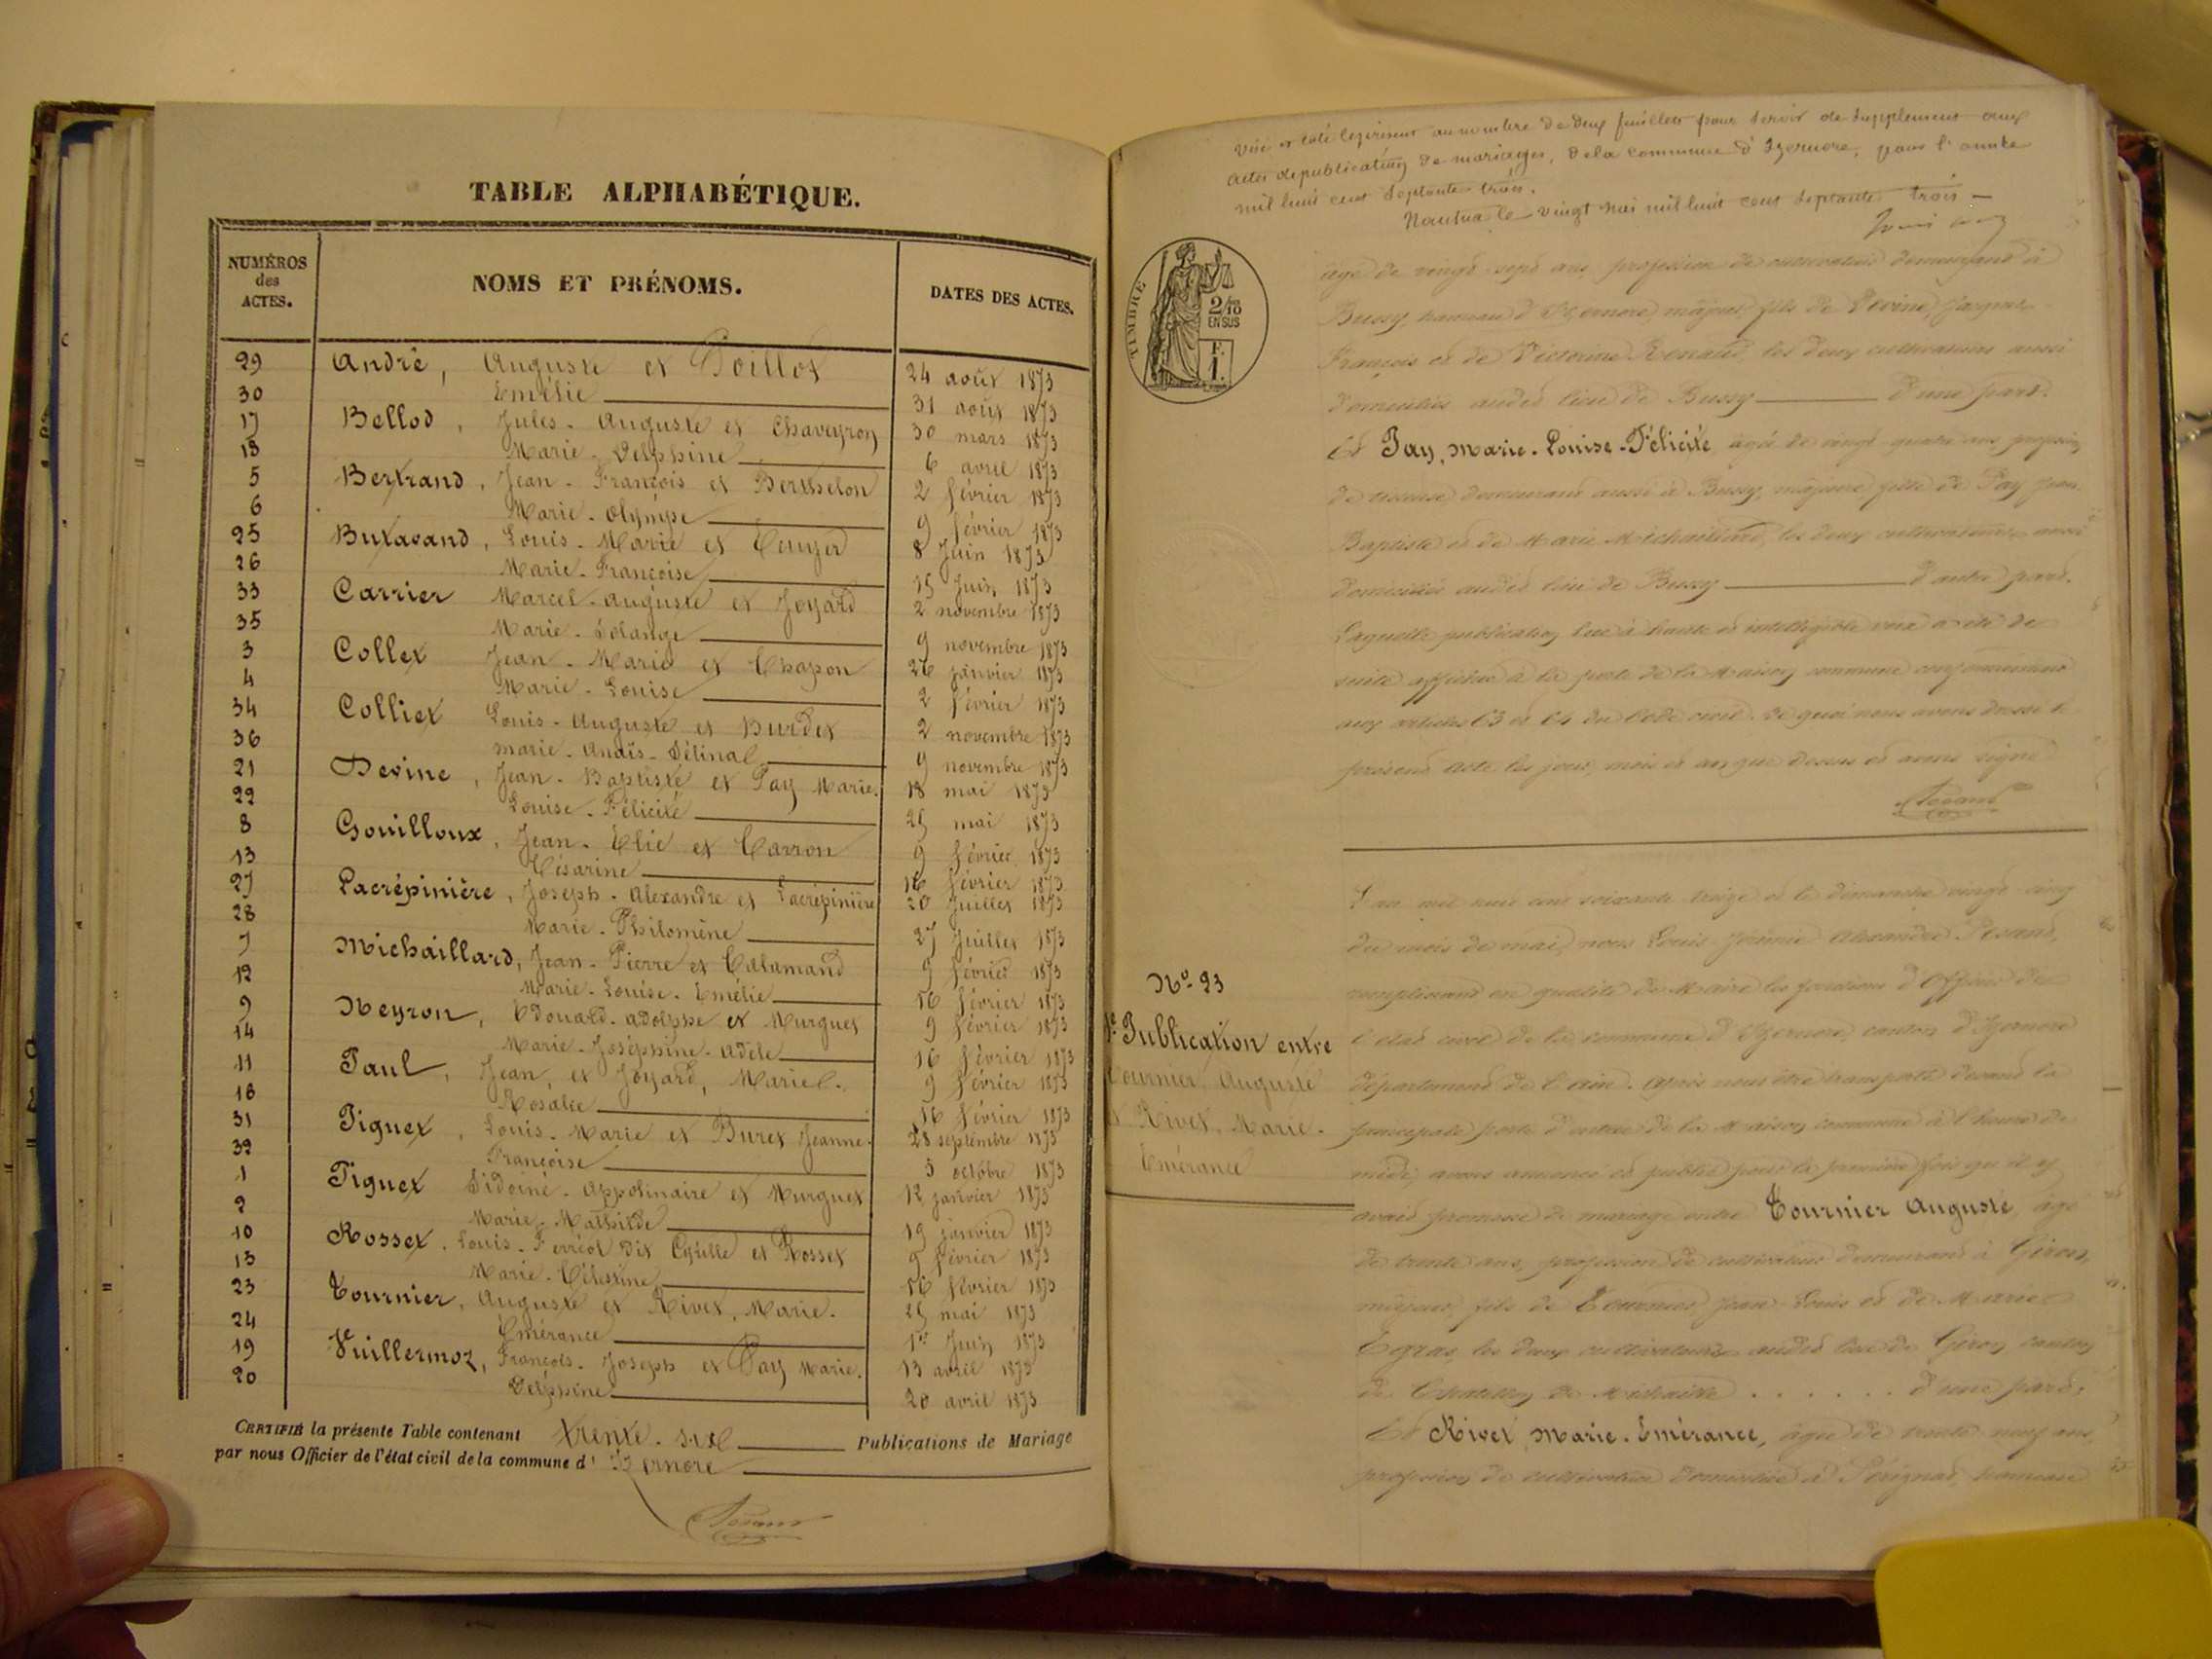 TABLE ALPHABÉTIQUE.
NUMÉROS
des
ACTES.
NOMS ET PRÉNOMS.
DATES DES ACTES.
29 André, Auguste et Poillot 24 août 1873
30 Emélie 31 août 1873
17 Bellod, Jules - Auguste et Chaveyron 30 mars 1873
18 Marie - Delphine 6 avril 1873
5 Bertrand, Jean - François et Berthelon 2 février 1873
6 Marie - Olympe 9 février 1873
25 Butavand, Louis - Marie et 8 Juin 1873
26 Marie - Françoise 15 Juin 1873
33 Carrier Marcel - Auguste et Joyard 2 novembre 1873
35 Marie - Solange 9 novembre 1873
3 Collet Jean - Marie et Chapon 26 janvier 1873
4 Marie - Louise 2 février 1873
34 Colliet Louis - Auguste et Burdet 2 novembre 1873
36 Marie - Anaïs - 9 novembre 1873
21 Devine, Jean - Baptiste et Pay Marie. 18 mai 1873
22 Louise - Félicité 25 mai 1873
8 Gouilloux, Jean - Elie et Carron 9 février 1873
13 Césarine 16 février 1873
27 Lacrépinière, Joseph - Alexandre et Lacrépinière 20 Juillet 1873
28 Marie - Philomène 27 Juillet 1873
7 Michaillard, Jean - Pierre et 9 février 1873
12 Marie - Louise - Emélie 16 février 1873
9 Neyron, Edouard - Adolphe et Murguet 9 février 1873
14 Marie - Joséphine - Adèle 16 février 1873
11 Paul, Jean, et Joyard, Marie. 9 février 1873
16 Rosalie 16 février 1873
31 Piguet, Louis - Marie et Buret Jeanne. 28 septembre 1873
32 Françoise 5 octobre 1873
1 Piguet Sidoine - Appolinaire et Murguet 12 janvier 1873
2 Marie - Mathilde 19 janvier 1873
10 Rosset. Louis - Ferréol dit et Rosset 9 février 1873
15 Marie - Célestine 16 février 1873
23 Tournier, Auguste et Rivet, Marie. 25 mai 1873
24 Emérance 1er Juin 1873
19 Vuillermoz, François - Joseph et Pay Marie. 13 avril 1873
20 Delphine 20 avril 1873
CERTIFIÉ la présente Table contenant trente - six Publications de Mariage
par nous Officier de l'état civil de la commune d' Izernore
Visé et coté le présent au nombre de deux feuillets pour servir de supplément aux
actes de publications de mariages, de la commune d'Izernore, pour l'année
mil huit cent septante trois.
Nantua le vingt mai mil huit cent septante trois
TIMBRE
2/10
EN SUS
F.
1.
âgé de vingt sept ans profession de cultivateur demeurant à
Bussy, hameau d'Izernore, majeur, fils de Devine, Jacques
François et de Victorine les deux cultivateurs aussi
domiciliés audit lieu de Bussy d'une part.
Et Pay, Marie - Louise - Félicité âgée de vingt quatre ans, profession
de demeurant aussi à Bussy, majeure fille de Pay Jean
Baptiste et de Marie Michaillard, les deux cultivateurs aussi
domiciliés audit lieu de Bussy d'autre part.
Laquelle publication lue à haute et intelligible voix a été de
suite affichée à la porte de la Maison commune conformément
aux articles 63 et 64 du Code civil. De quoi nous avons dressé le
présent acte les jour, mois et an que dessus et avons signé
L'an mil huit cent soixante treize et le dimanche vingt cinq
du mois de mai, nous Louis Jérémie Alexandre
remplissant en qualité de Maire les fonctions d'Officier de
l'état civil de la commune d'Izernore, canton d'Izernore
département de l'Ain. Après nous être transporté devant la
principale porte d'entrée de la Maison commune à l'heure de
midi, avons annoncé et publié pour la première fois qu'il y
avait promesse de mariage entre Tournier Auguste, âgé
de trente ans, profession de cultivateur demeurant à Giron,
majeur, fils de Tournier Jean Louis et de Marie
les deux cultivateurs audit lieu de Giron canton
de Châtillon de Michaille . . . . . . d'une part.
Et Rivet, Marie - Emérance, âgée de trente neuf ans,
profession de domiciliée à Pérignat, hameau
No 23
1e Publication entre
Tournier, Auguste
et Rivet, Marie -
Emérance